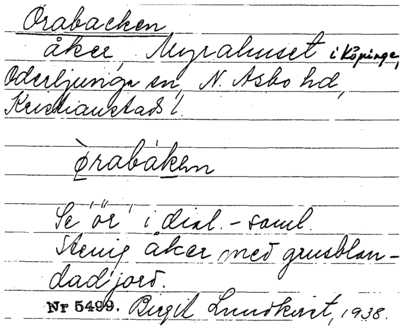 Örabacken
åker, Myrahuset i Köpinge,
Oderljunga sn, N. Åsbo hd,
Kristianstads l.
ø̀rabáken
Se 'ör' i dial.-saml.
Stenig åker med grusblan-
dad jord.
Nr 5499. Bergil Lundkvist, 1938.